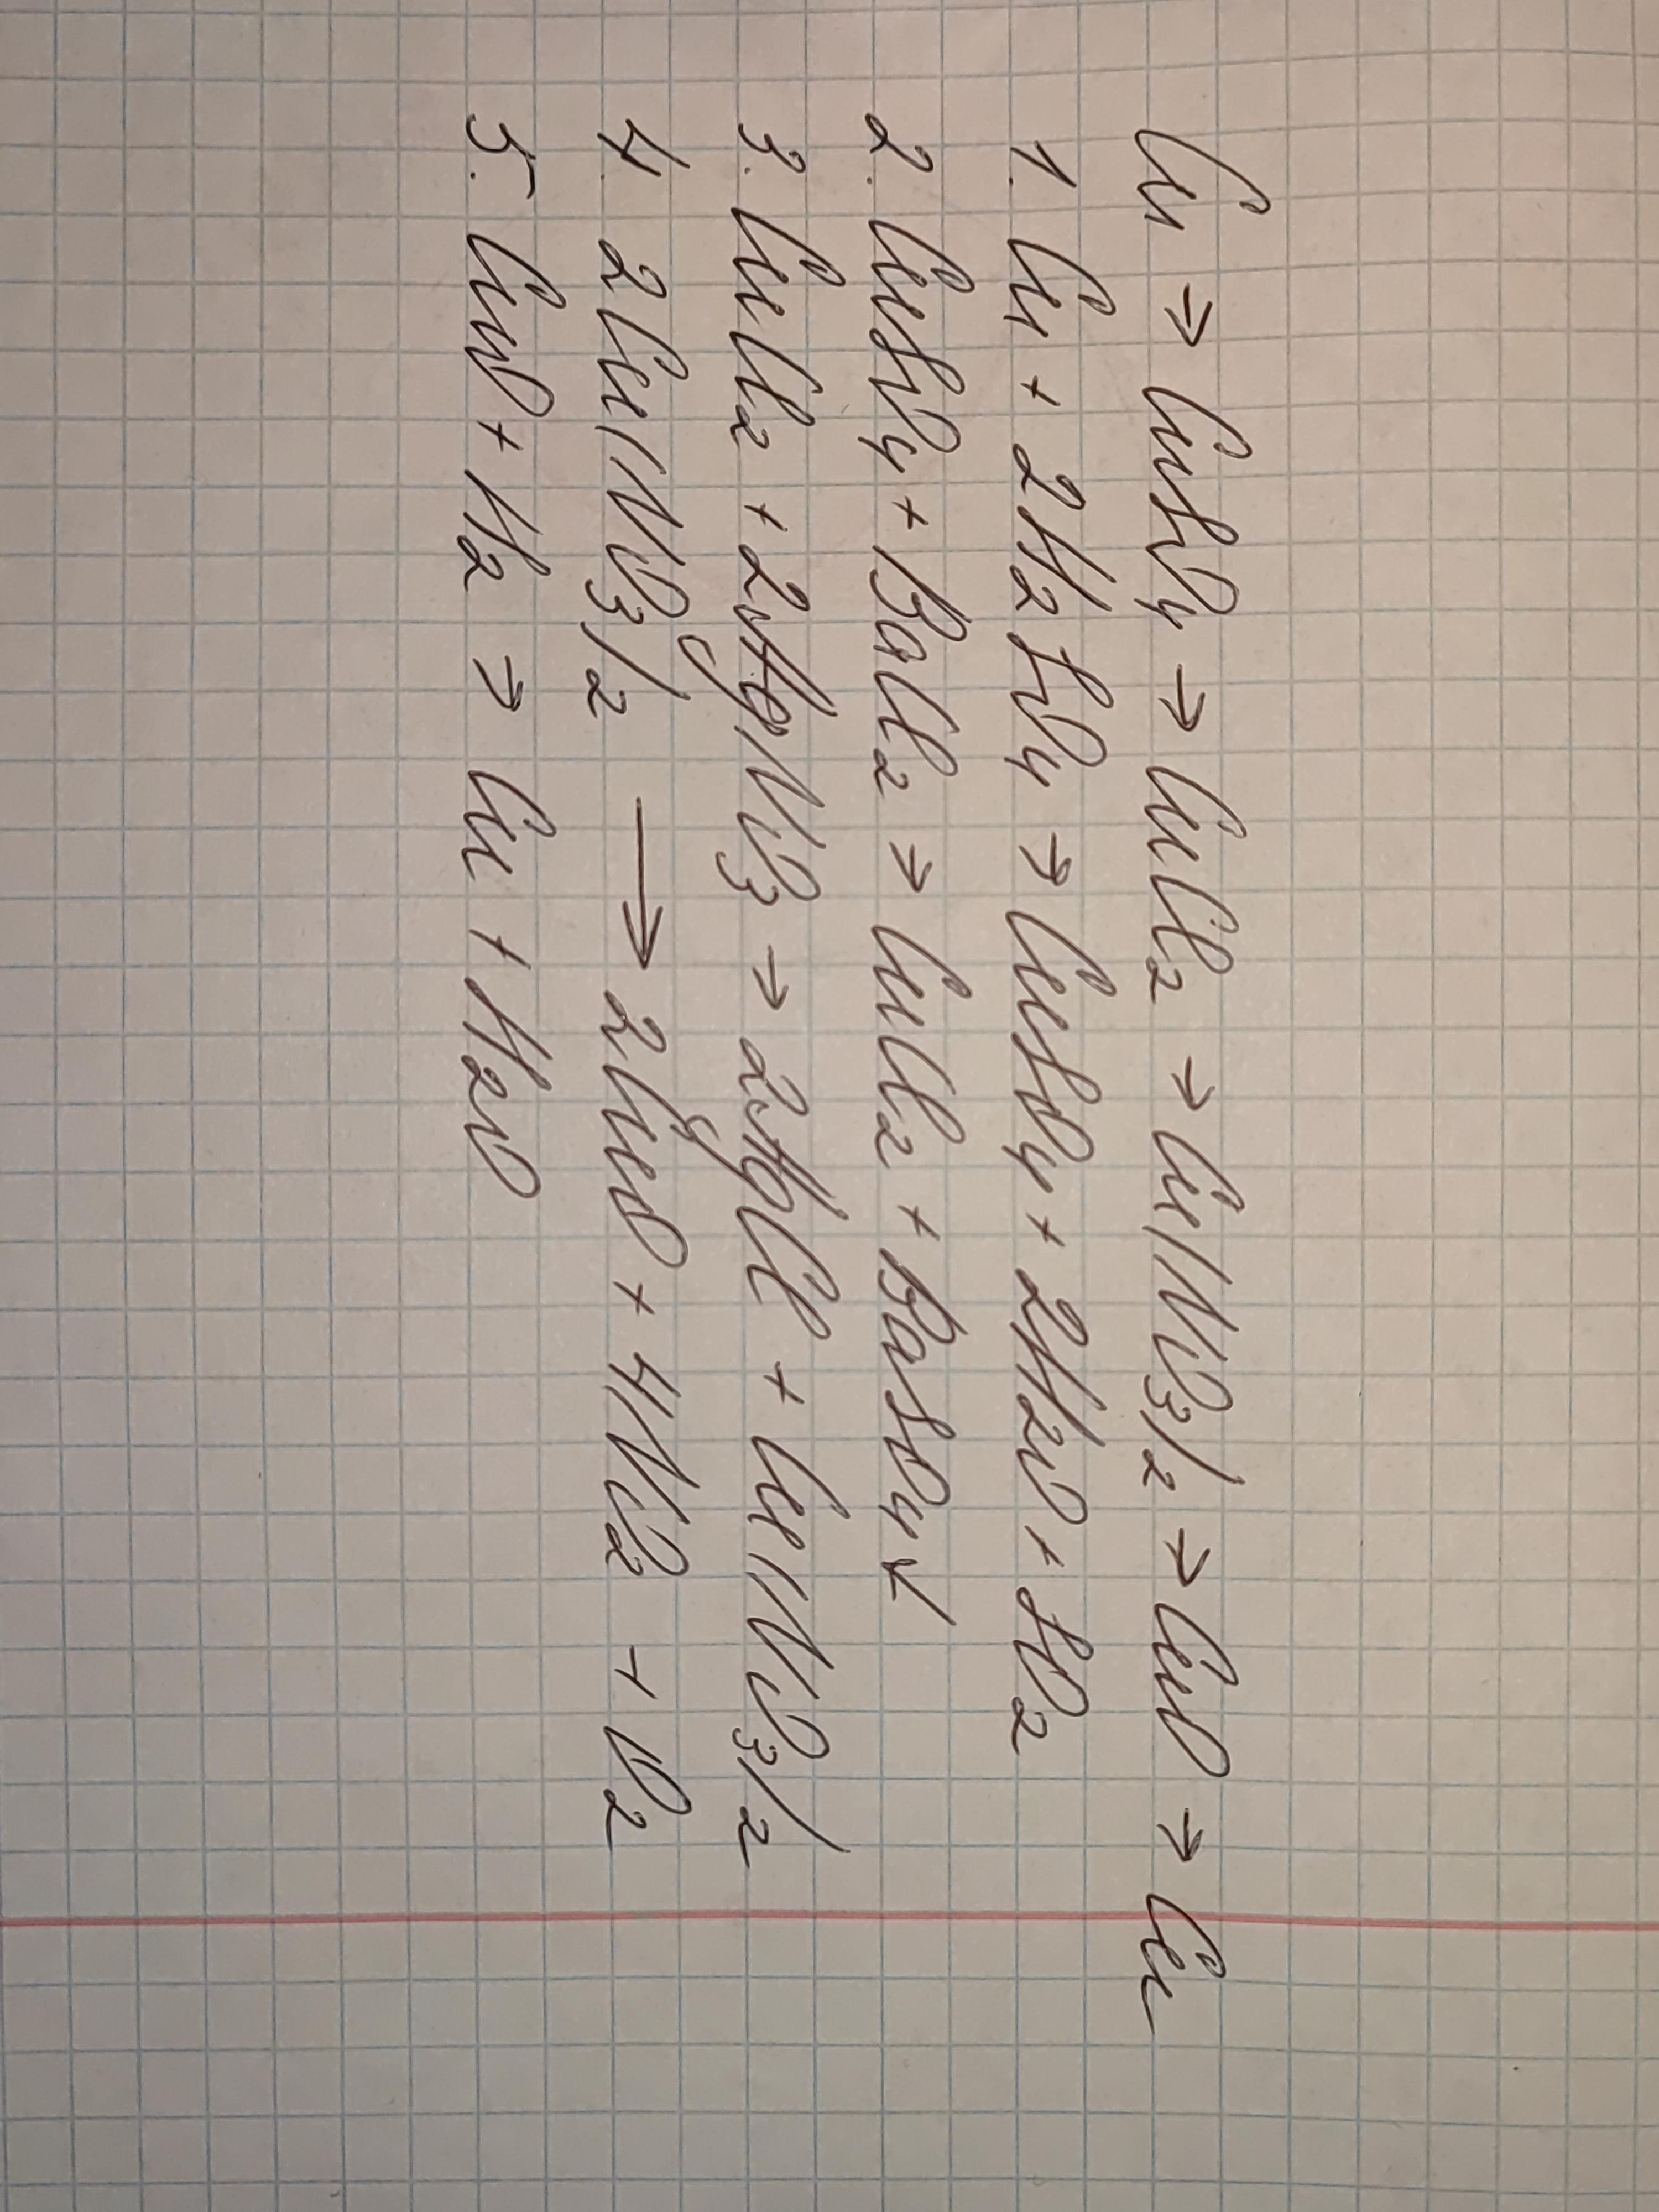 Cu → CuSO4 → CuCl2 → Cu(NO3)2 → CuO → Cu
1. Cu + 2H2SO4 → CuSO4 + 2H2O + SO2
2. CuSO4 + BaCl2 → CuCl2 + BaSO4↓
3. CuCl2 + 2AgNO3 → 2AgCl + Cu(NO3)2
4. 2Cu(NO3)2 ⟶ 2CuO + 4NO2 + O2
5. CuO + H2 → Cu + H2O